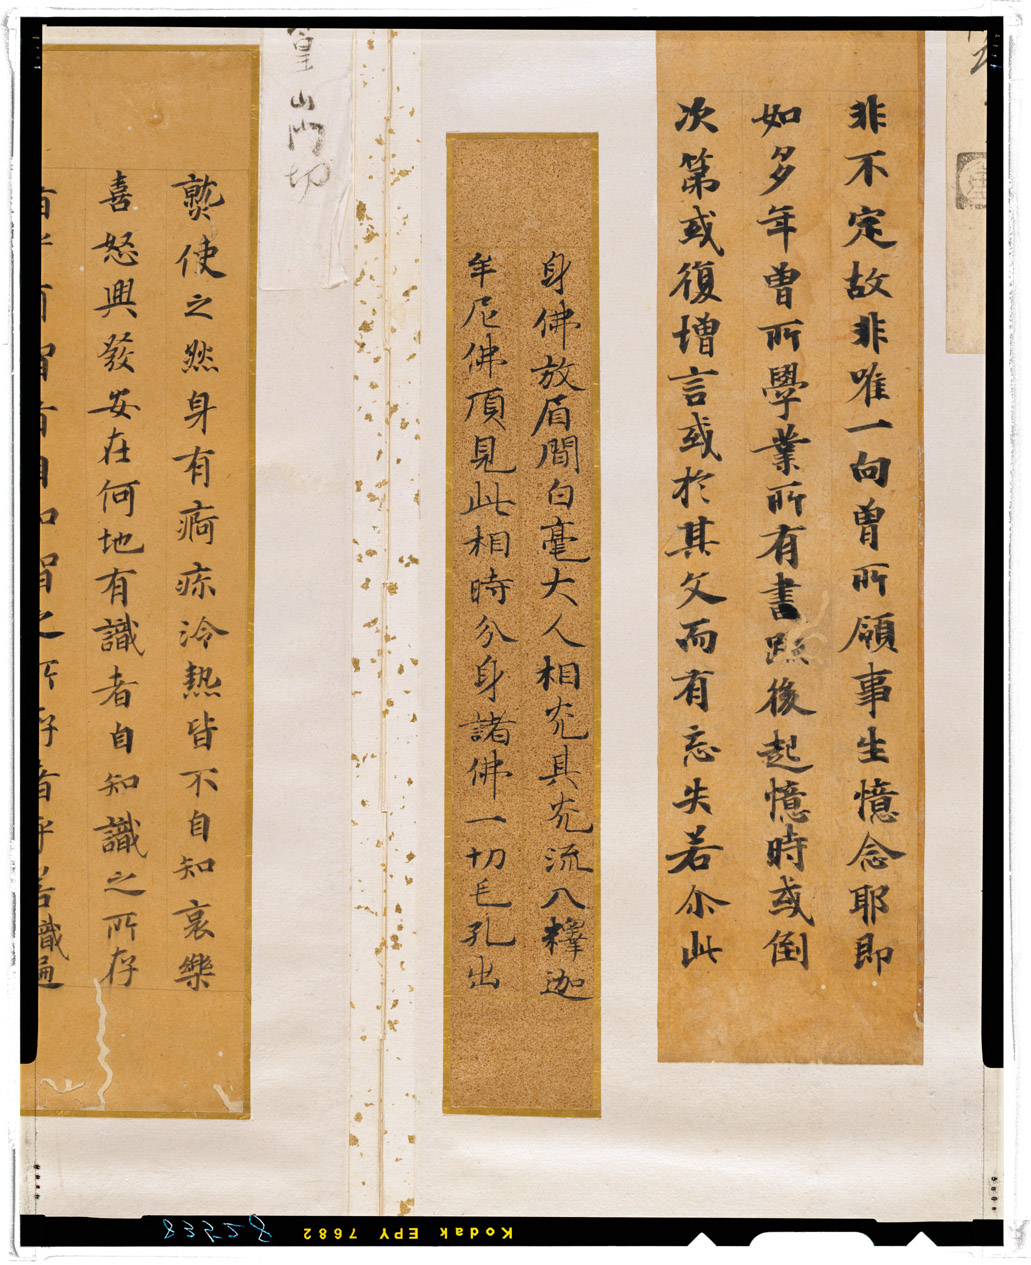 非不定故非唯一向曽所領事生憶念耶即
如多年曽所學業所有書疏後起憶時或倒
次第或復增言或於其文而有忘失若尒此
身佛放眉間白毫大人相光具光流入釋迦
牟尼佛頂見此相時分身諸佛一切毛孔出
山門切
甏使之然身有痾痳冷熱皆不自知哀樂
喜怒興發安在何地有識者自知識之所存
Kodak EPY 7682
83528